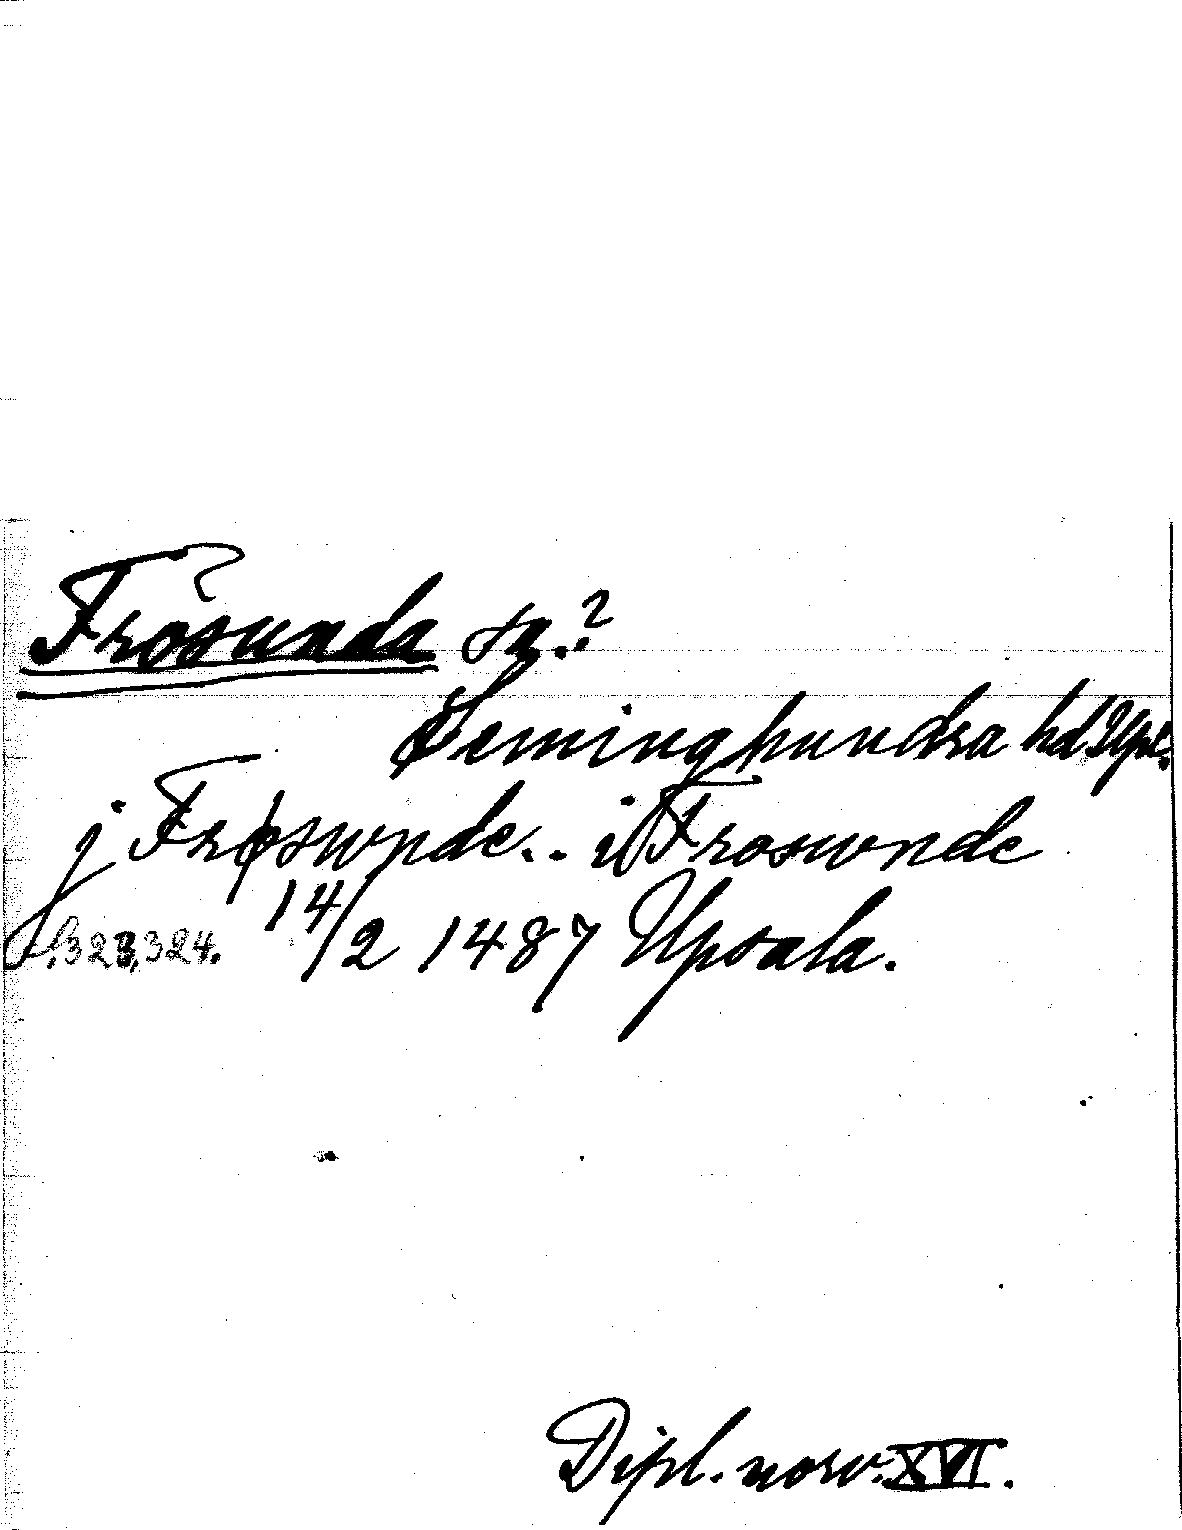 Frösunda sn.?
Seminghundra hd Upl.
j Frøswnde.. i Froswnde
s. 323, 324. 14/2 1487 Upsala.
Dipl. norv. XVI.